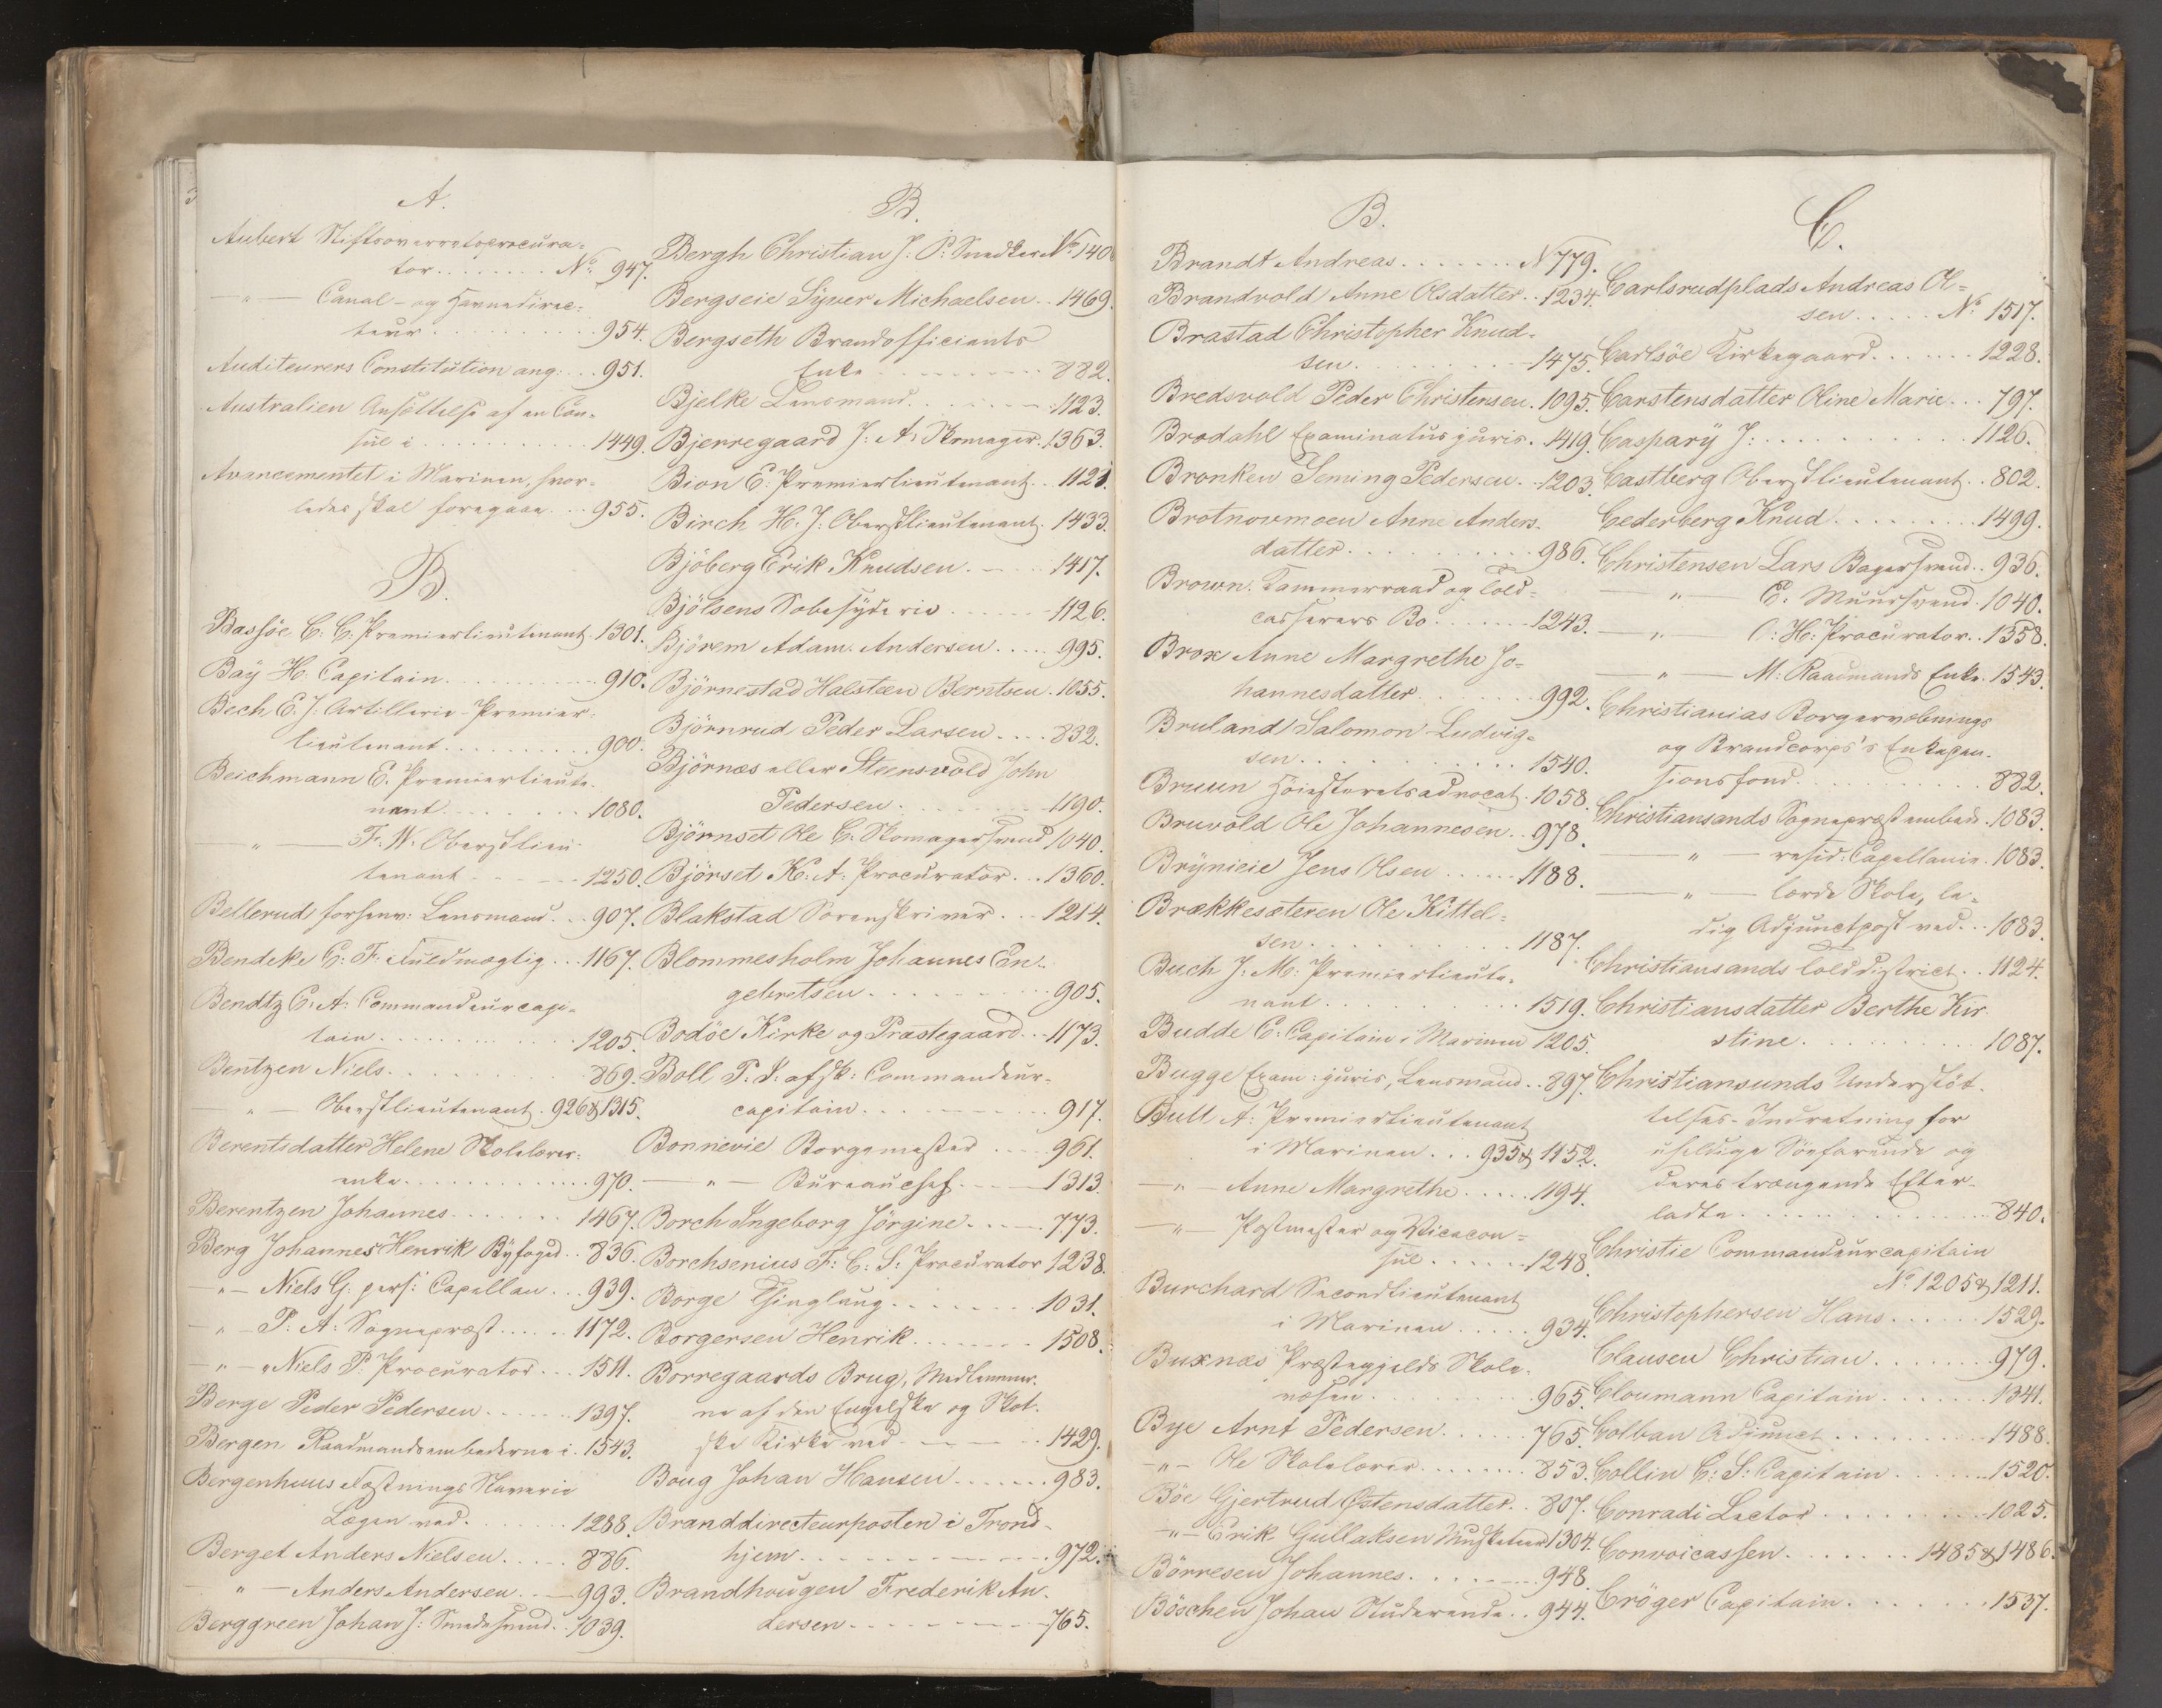 A.
Aubert Stiftsoverretsprocura-
tor ........ No. 947.
— " — Canal- og Havnedirec-
teur .......... 954.
Auditeurers Constitution ang. ... 951.
Australien Ansættelse af en Con-
sul i .......... 1449.
Avancementet i Marinen, hvor-
ledes skal foregaae ... 955.
B.
Bassøe C. C. Premierlieutenant. 1301.
Baÿ H. Capitain .......... 910.
Bech E. J. Artillerie-Premier-
lieutenant .......... 900.
Beichmann E. Premierlieute-
nant .......... 1080.
— " — F. W. Oberstlieu-
tenant ..... 1250.
Bellerud forhenv: Lensmand ... 907.
Bendeke C: F. Fuldmægtig ... 1167.
Bendtz C: A: Commandeurcapi-
tain .......... 1205.
Bentzen Niels .......... 869.
— " — Oberstlieutenant . 926 & 1315.
Berentsdatter Helene Skolelærer-
enke .......... 970.
Berentzen Johannes ...... 1467.
Berg Johannes Henrik Byfoged .. 836.
— " — Niels G. pers: Capellan ... 939.
— " — P: A: Sognepræst ..... 1172.
— " — Niels P. Procurator ... 1511.
Berge Peder Pedersen ...... 1397.
Bergen Raadmandsembederne i . 1543.
Bergenhuus Fæstnings Slaverie
Lægen ved ....... 1288.
Berget Anders Nielsen ..... 886.
— " — Anders Andersen .. 993.
Berggreen Johan J: Smedesvend .. 1039.
B.
Bergh Christian J: P: Snedker No. 140
Bergseie Syver Michaelsen .. 1469.
Bergseth Brandofficiants
Enke .......... 882.
Bjelke Lensmand ...... 1123.
Bjerregaard J: A: Skomager. 1363.
Bion E: Premierlieutenant .. 1121.
Birch H. J: Oberstlieutenant. 1433.
Bjöberg Erik Knudsen .... 1417.
Bjölsens Sæbesyderie ...... 1126.
Björem Adam Andersen .... 995.
Björnestad Halsteen Berntsen . 1055.
Björnrud Peder Larsen .... 832.
Björnæs eller Steensvold John
Pedersen ........ 1190.
Björnset Ole C: Skomagersvend 1040.
Björset K: A: Procurator ... 1360.
Blakstad Sorenskriver ... 1214.
Blommesholm Johannes En-
gebretsen .......... 905.
Bodöe Kirke og Præstegaard ... 1173.
Boll P. I: afsk: Commandeur-
capitain .......... 917.
Bonnevie Borgemester .... 961.
— " — Bureauchef ..... 1313.
Borch Ingeborg Jörgine ..... 773.
Borchsenius F: C: S: Procurator 1238.
Borge Thinglaug ........ 1031.
Borgersen Henrik ....... 1508.
Borregaards Brug, Medlemmer-
ne af den Engelske og Skot-
ske Kirke ved ...... 1429.
Boug Johan Hansen ...... 983.
Branddirecteurposten i Trond-
hjem .......... 972.
Brandhougen Frederik An-
dersen .......... 765.
B.
Brandt Andreas ....... No 779.
Brandvold Anne Olsdatter .. 1234.
Brastad Christopher Knud-
sen .......... 1475.
Bredsvold Peder Christensen . 1095.
Brodahl Examinatus juris . 1419.
Bronken Seming Pedersen .. 1203.
Brotnowmoen Anne Anders-
datter .......... 986.
Brown Kammerraad og Told-
casserers Bo ...... 1243.
Brox Anne Margrethe Jo-
hannesdatter ...... 992.
Bruland Salomon Ludvig-
sen .......... 1540.
Bruun Høiesteretsadvocat . 1058.
Bruvold Ole Johannesen .. 978.
Brÿnieie Jens Olsen ..... 1188.
Brækkesæteren Ole Kittel-
sen .......... 1187.
Buch J. M: Premierlieute-
nant .......... 1519.
Budde C: Capitain i Marinen 1205.
Bugge Exam: juris, Lensmand .. 897.
Bull A: Premierlieutenant
i Marinen ... 935 & 1152.
— " — Anne Margrethe ..... 1194.
— " — Postmester og Vicecon-
sul ...... 1248.
Burchard Secondlieutenant
i Marinen ..... 934.
Buxnæs Præstegjelds Skole-
væsen .......... 965.
Bye Arnt Pedersen ...... 765.
— " — Ole Skolelærer ....... 853.
Böe Gjertrud Østensdatter .. 807.
— " — Erik Gullaksen Musketeer 1304.
Börresen Johannes ....... 948.
Böschen Johan Studerende .. 944.
C.
Carlsrudplads Andreas Ol-
sen ..... No. 1517.
Carlsöe Kirkegaard ...... 1228.
Carstensdatter Oline Marie ... 797.
Casparÿ J: .......... 1126.
Castberg Oberstlieutenant .. 802.
Cederberg Knud ........ 1499.
Christensen Lars Bagersvend .. 936.
— " — C: Muursvend . 1040.
— " — C: H: Procurator .. 1358.
— " — M: Raadmands Enke . 1543.
Christianias Borgervæbnings
og Brandcorps's Enkepen-
sionsfond .......... 882.
Christiansands Sognepræstembede . 1083.
— " — resid: Capellanie . 1083.
— " — lærde Skole, le-
dig Adjunctpost ved ... 1083.
Christiansands Tolddistrict .. 1124.
Christiansdatter Berthe Kir-
stine .......... 1087.
Christiansunds Understöt-
telses-Indretning for
uheldige Söefarende og
deres trængende Efter-
ladte .......... 840.
Christie Commandeurcapitain
No. 1205 & 1211.
Christophersen Hans ...... 1529.
Clausen Christian ....... 979.
Cloumann Capitain ...... 1341.
Colban Adjunct .......... 1488.
Collin C: S: Capitain ....... 1520.
Conradi Lector .......... 1025.
Convoicassen ....... 1485 & 1486.
Cröger Capitain ........ 1537.